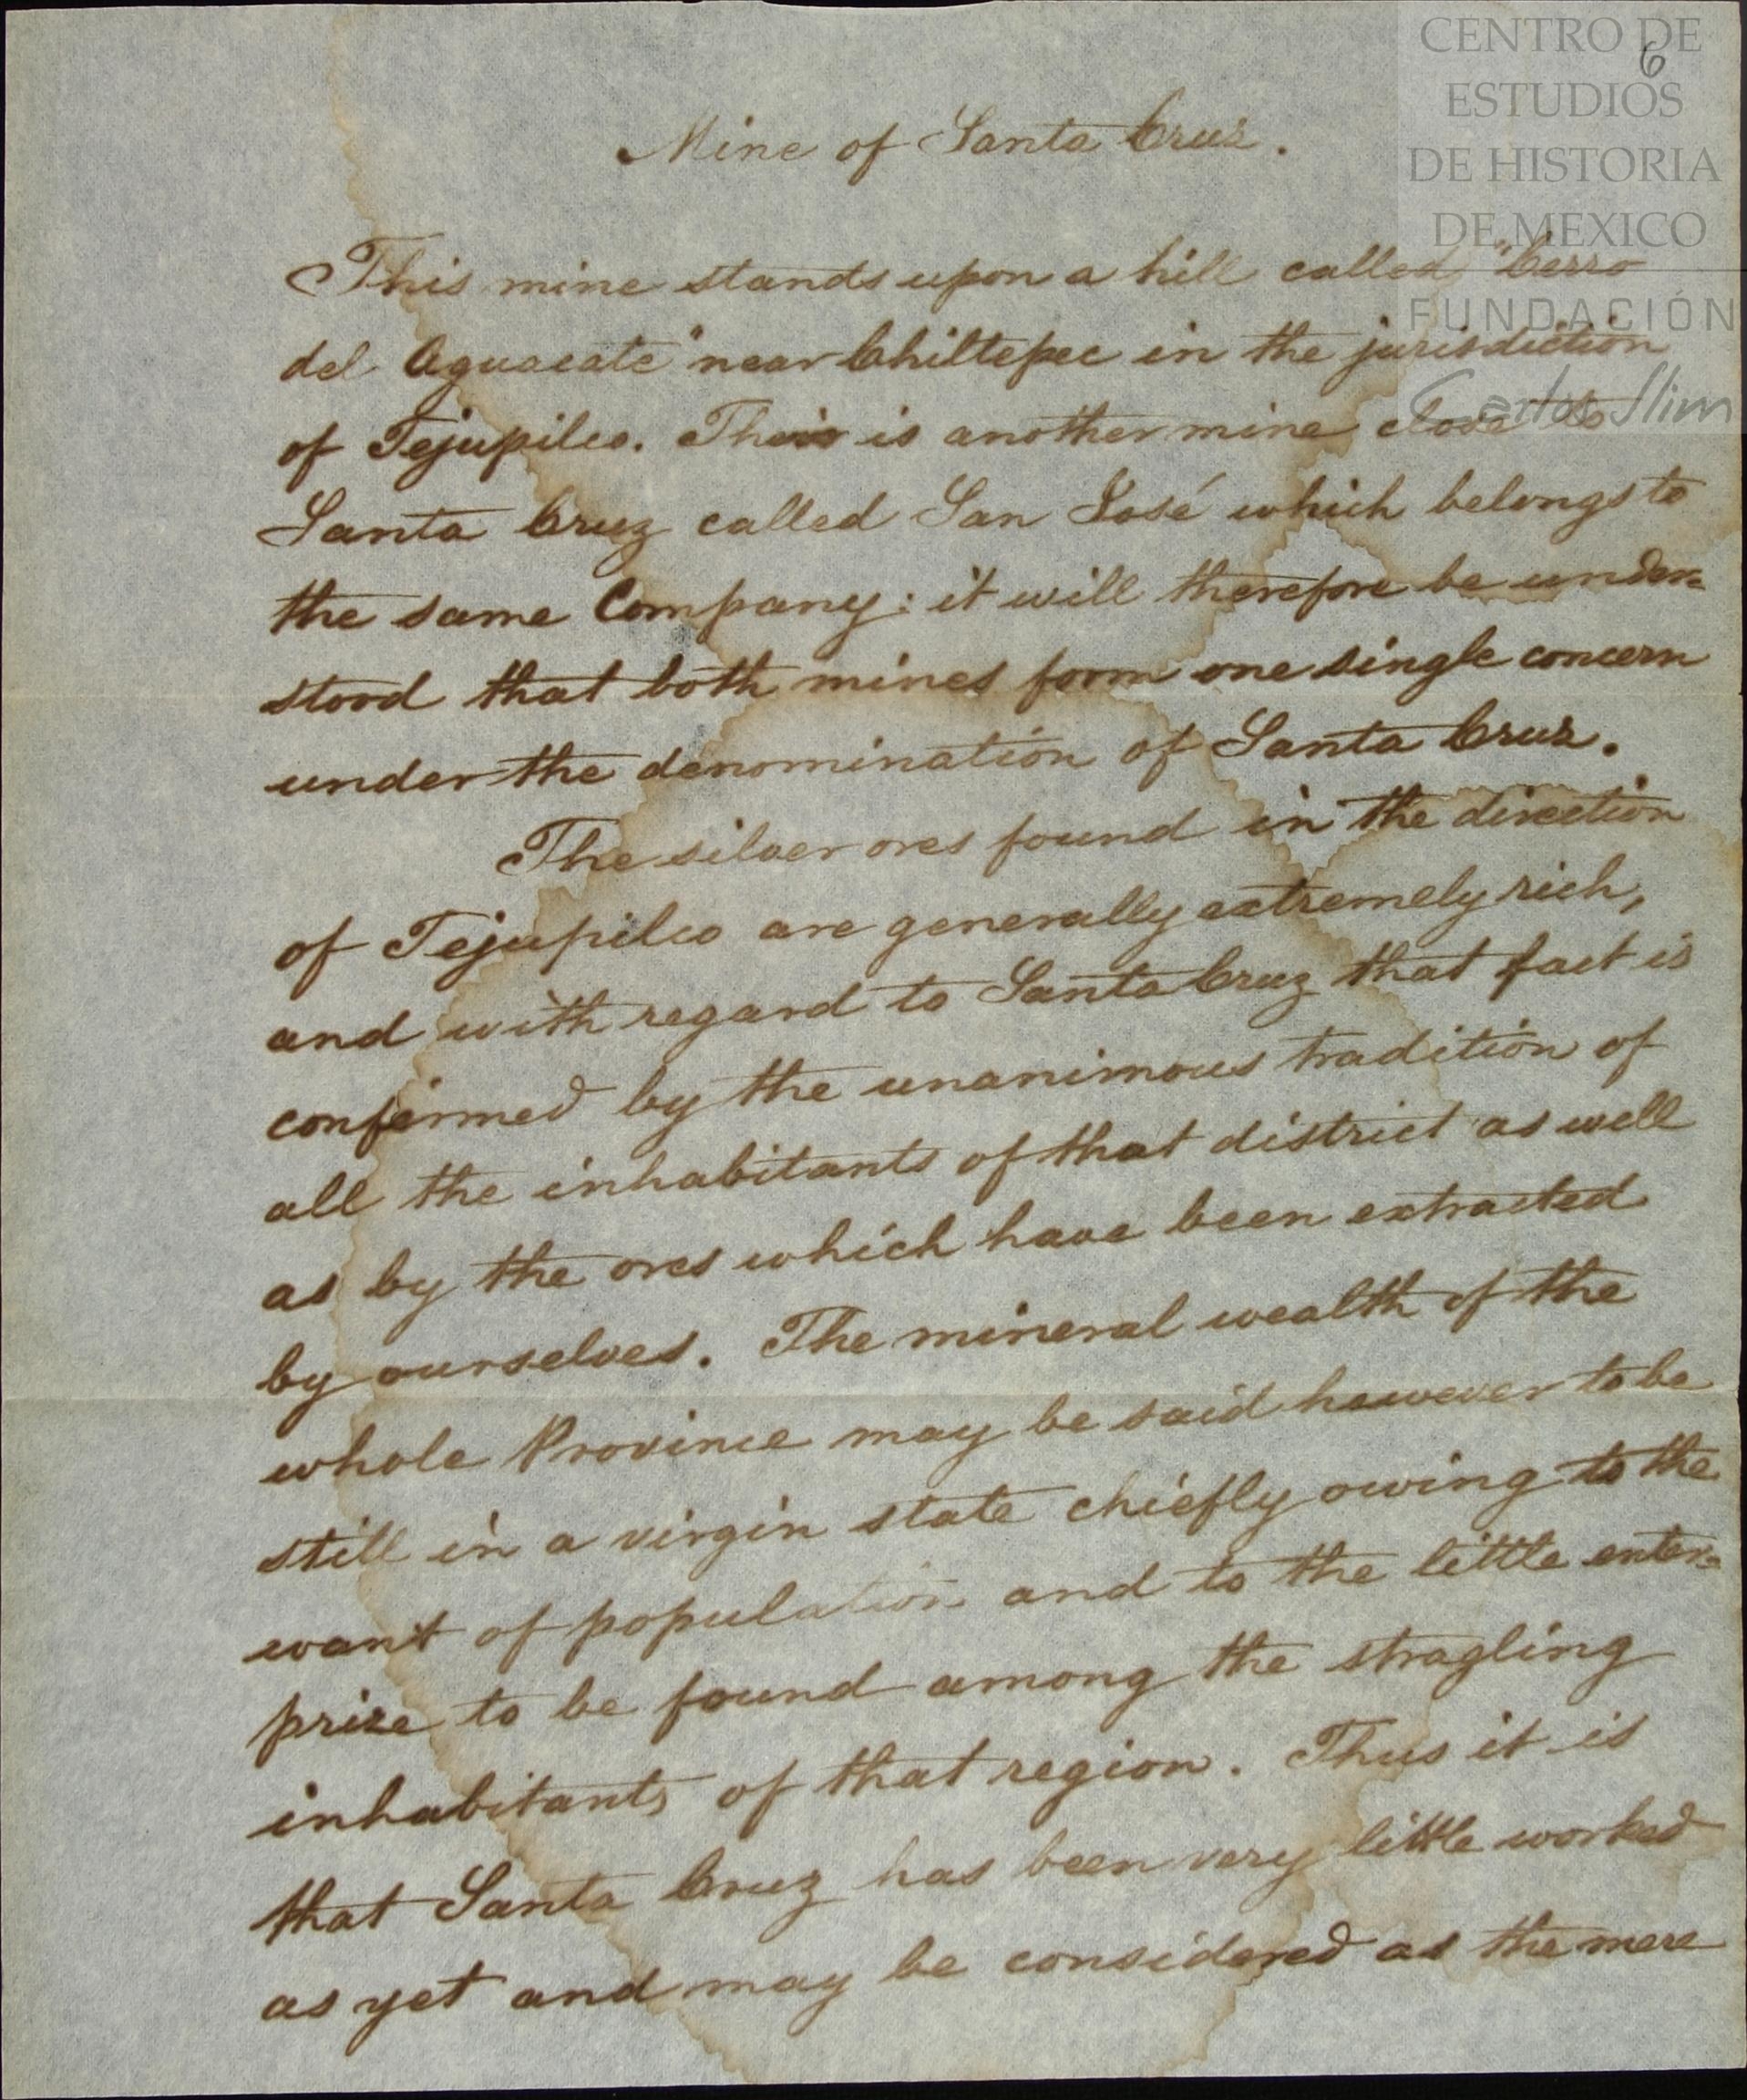 CENTRO DE
ESTUDIOS
DE HISTORIA
DE MEXICO
FUNDACIÓN
Carlos Slim
6
Mine of Santa Cruz.
This mine stands upon a hill called "Cerro
del Aguacate" near Chiltepec in the jurisdiction
of Tejupilco. Their is another mine close to
Santa Cruz called San José which belongs to
the same Company: it will therefore be under=
stood that both mines form one single concern
under the denomination of Santa Cruz.
The silver ores found in the direction
of Tejupilco are generally extremely rich,
and with regard to Santa Cruz that fact is
confirmed by the unanimous tradition of
all the inhabitants of that district as well
as by the ores which have been extracted
by ourselves. The mineral wealth of the
whole Province may be said however to be
still in a virgin state chiefly owing to the
want of population and to the little enter=
prize to be found among the stragling
inhabitants of that region. Thus it is
that Santa Cruz has been very little worked
as yet and may be considered as the mere